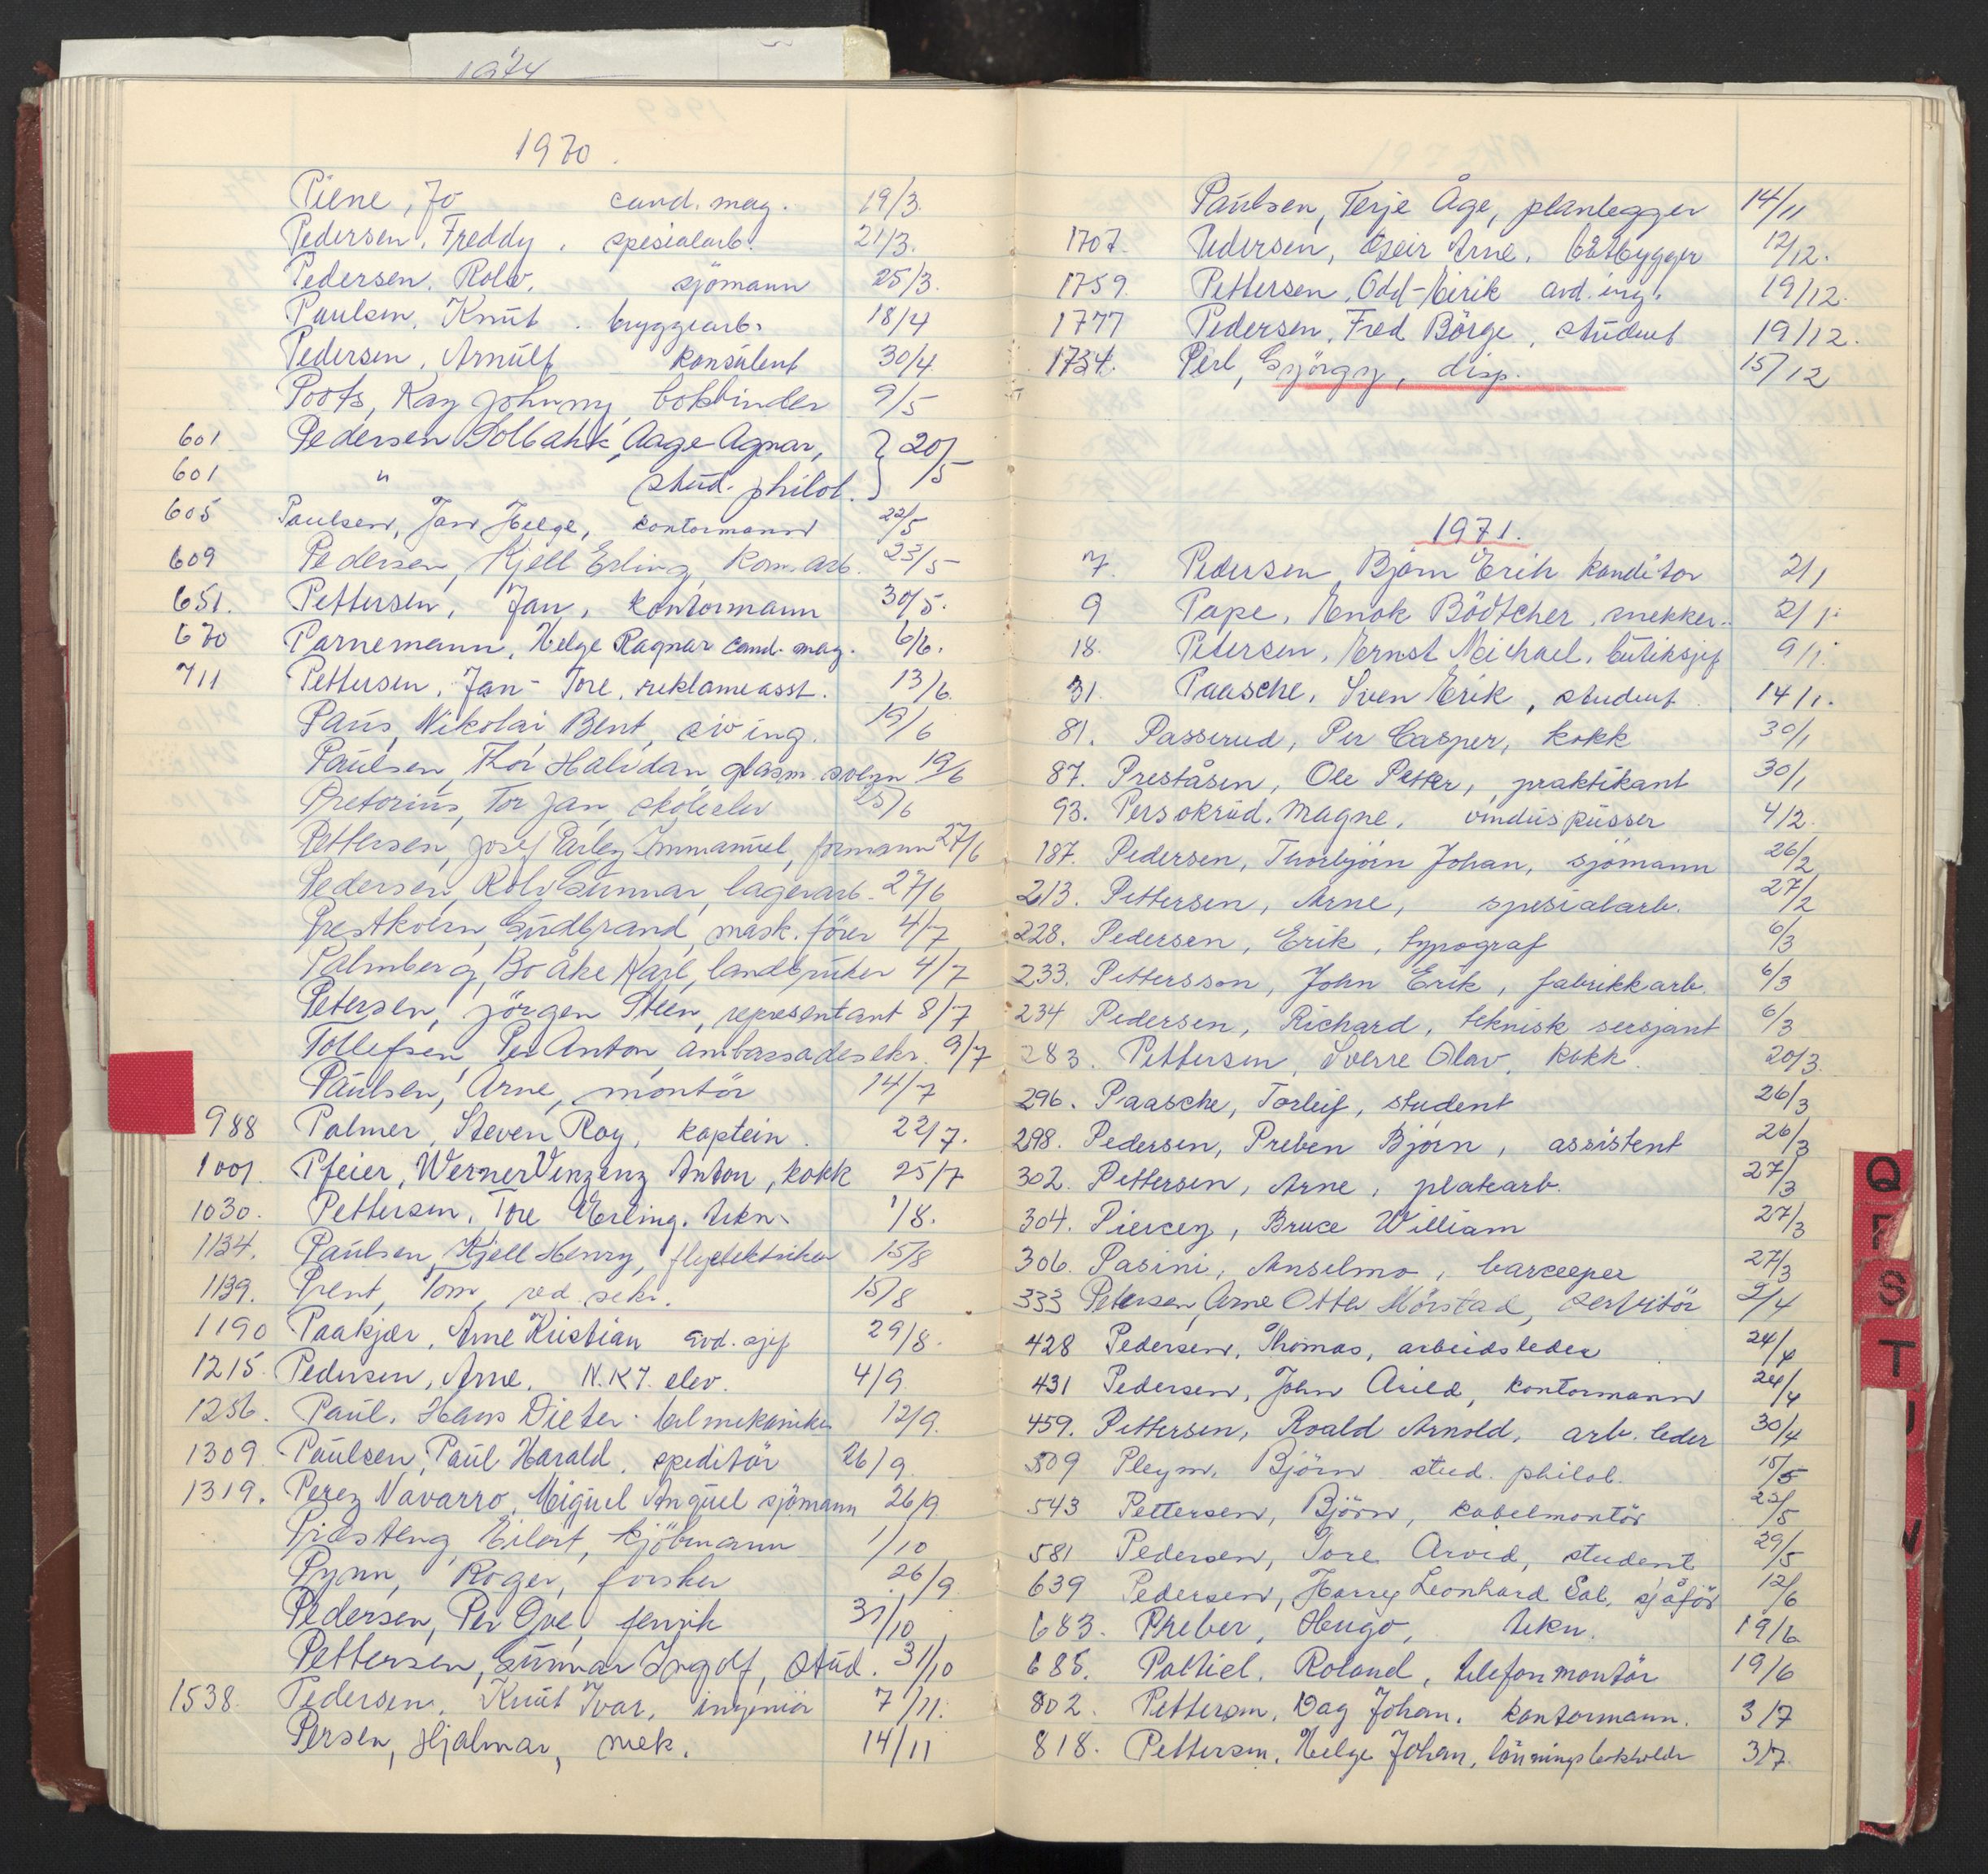 1974
1970.
Piene, Jo cand. mag. 19/3.
Pedersen, Freddy. spesialarb. 21/3.
Pedersen, Rolv. sjömann 25/3.
Paulsen, Knut. byggearb. 18/4
Pedersen, Arnulf konsulent 30/4
Poots, Kay Johnny, bokbinder 9/5
601 Pedersen Solbakk, Aage Agnar, } 20/5
601 " stud. philol.
605 Paulsen, Jan Helge, kontormann 22/5
609 Pedersen, Kjell Erling, kom. arb. 23/5
651. Pettersen, Jan, kontormann 30/5.
670 Parnemann, Helge Ragnar cand. mag. 6/6.
711 Pettersen, Jan-Tore, reklameasst. 13/6.
Paus, Nikolai Bent, siv ing. 19/6
Paulsen, Thor Halvdan glasm. svenn 19/6
Pretorius, Tor Jan, skoleelev 25/6
Pettersen, Josef Parley Immanuel, formann 27/6
Pedersen, Rolv Gunnar, lagerarb. 27/6
Prestkvern, Gudbrand, mask. förer 4/7
Palmberg, Bo Åke Karl, landbruker 4/7
Petersen, Jörgen Steen, representant 8/7
Tollefsen, Per Anton, ambassadesekr. 9/7
Paulsen, Arne, montör 14/7
988 Palmer, Steven Roy, kaptein. 22/7.
1001 Pfeier, Werner Venzenz Anton, kokk 25/7
1030. Pettersen, Tore Erling. tekn. 1/8.
1134. Paulsen, Kjell Henry, flyelektriker 15/8
1139. Prent, Tom, red. sekr. 15/8
1190 Paakjær, Arne Kristian avd. sjef 29/8.
1215. Pedersen, Arne. N.K.I. elev. 4/9
1256. Paul, Hans Dieter. bilmekaniker 12/9.
1309 Paulsen, Paul Harald. speditör 26/9.
1319. Perez Navarro, Miguel Anguel sjömann 26/9
Præsteng, Eilert, kjöbmann 1/10
Pynn, Roger, forsker 26/9
Pedersen, Per Ove, fenrik 31/10
Pettersen, Gunnar Ingolf, stud. 31/10
1538. Pedersen, Knut Ivar, ingeniör 7/11.
Persen, Hjalmar, mek. 14/11
Paulsen, Terje Åge, planlegger 14/11
1707. Pedersen, Geir Arne, båtbygger 12/12.
1759. Pettersen, Odd-Eirik avd. ing. 19/12.
1777 Pedersen, Fred Börge, student 19/12.
1734. Perl, György, disp. 15/12
1971.
7. Pedersen, Björn Erik konditor 2/1
9 Pape, Enok Bödtcher, snekker. 2/1.
18. Petersen, Ernst Michael, butiksjef 9/1.
31. Paasche, Sven Erik, student 14/1.
81. Passerud, Per Casper, kokk 30/1
87. Preståsen, Ole Petter, praktikant 30/1
93. Persokrud, Magne, vinduspusser 4/2.
187. Pedersen, Thorbjörn Johan, sjömann 26/2
213. Pettersen, Arne, spesialarb. 27/2
228. Pedersen, Erik, typograf 6/3
233. Pettersson, John Erik, fabrikkarb. 6/3
234 Pedersen, Richard, teknisk sersjant 6/3
283. Pettersen, Sverre Olav, kokk. 20/3.
296. Paasche, Torleif, student 26/3
298. Pedersen, Preben Bjørn, assistent 26/3
302. Pettersen, Arne, platearb. 27/3
304. Piercey, Bruce William 27/3
306. Pasini, Anselmo, barkeeper 27/3
333 Petersen, Arne Otter Mörstad, servitör 2/4
428 Pedersen, Thomas, arbeidsleder 24/4
431 Pedersen, John Arild, kontormann 24/4
459. Pettersen, Roald Arnold, arb. leder 30/4
509 Pleym, Björn stud. philol. 15/5
543 Pettersen, Björn, kabelmontör 22/5
581 Pedersen, Tore Arvid, student 29/5
639 Pedersen, Harry Leonhard Sal. sjåför 12/6
683. Preber, Hugo, tekn. 19/6
685. Paltiel, Roland, telefonmontör 19/6
802. Pettersen, Dag Johan. kontormann. 3/7
818. Pettersen, Helge Johan, lönningsbokholder 3/7.
Q
R
S
T
U